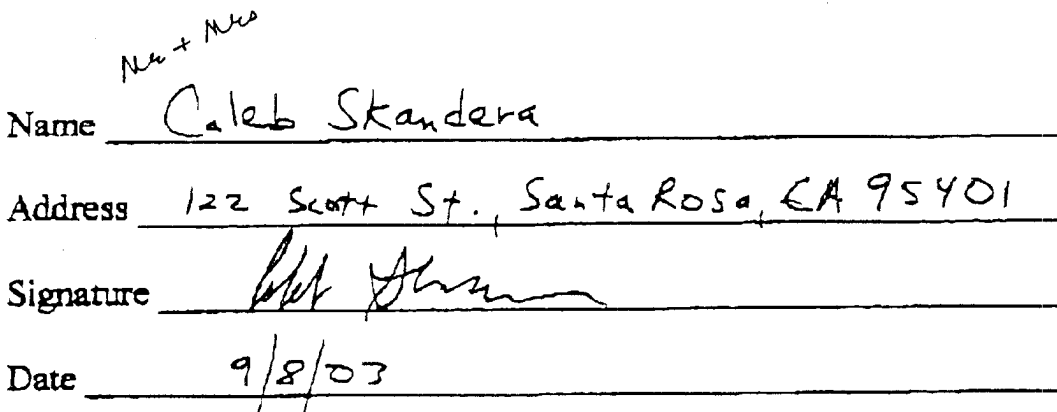 Mr + Mrs
Name Caleb Skandera
Address 122 Scott St., Santa Rosa, CA 95401
Signature
Date 9/8/03